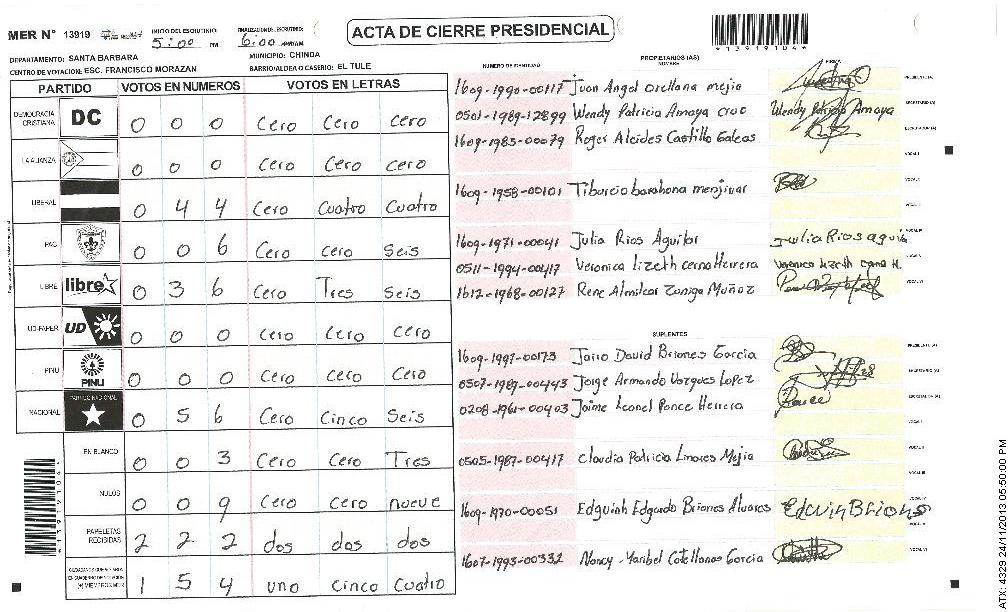 MER N° 13919
INICIO DEL ESCRUTINIO: 5:00 PM
FINALIZACION DEL ESCRUTINIO: 6:00
ACTA DE CIERRE PRESIDENCIAL
*13919104*
DEPARTAMENTO: SANTA BARBARA
MUNICIPIO: CHINDA
CENTRO DE VOTACION: ESC. FRANCISCO MORAZAN
BARRIO/ALDEA O CASERIO: EL TULE
PARTIDO VOTOS EN NUMEROS VOTOS EN LETRAS
DEMOCRACIA CRISTIANA DC 0 0 0 Cero Cero cero
LA ALIANZA 0 0 0 Cero Cero cero
LIBERAL 0 4 4 Cero Cuatro Cuatro
PAC 0 0 6 Cero Cero Seis
LIBRE libre 0 3 6 Cero Tres Seis
UD-FAPER UD 0 0 0 Cero Cero Cero
PINU PINU 0 0 0 Cero Cero Cero
NACIONAL PARTIDO NACIONAL 0 5 6 Cero Cinco Seis
EN BLANCO 0 0 3 Cero Cero Tres
NULOS 0 0 9 Cero cero nueve
PAPELETAS RECIBIDAS 2 2 2 dos dos dos
1 5 4 uno Cinco Cuatro
*13919104*
NUMERO DE IDENTIDAD
PROPIETARIOS (AS)
NOMBRE
FIRMA
1609-1990-00117 Juan Angel orellana mejia PRESIDENTE (A)
0501-1989-12899 Wendy Patricia Amaya cruz Wendy Patricia Amaya SECRETARIO (A)
1609-1985-00079 Roger Alcides Castillo Galeas ESCRUTADOR (A)
VOCAL I
1609-1958-00101 Tiburcio barahona menjivar VOCAL II
1609-1971-00041 Julia Rios Aguilar Julia Rios aguilar
0511-1994-00417 Veronica lizeth cerna Herrera Veronica lizeth cerna H.
1612-1968-00127 Rene Almilcar Zuniga Muñoz
SUPLENTES
1609-1997-00173 Jairo David Briones Garcia PRESIDENTE (A)
0507-1989-00443 Jorge Armando Vazques Lopez SECRETARIO (A)
0208-1961-00403 Jaime Leonel Ponce Herrera Ponce ESCRUTADOR (A)
VOCAL I
0505-1987-00417 Claudia Patricia Linares Mejia VOCAL II
VOCAL III
1609-1970-00051 Edguinh Edgardo Briones Alvares Edwin Briones
1607-1993-00332 Nancy Maribel Catellanos Garcia VOCAL VI
ATX: 4329 24/11/2013 05:50:00 PM